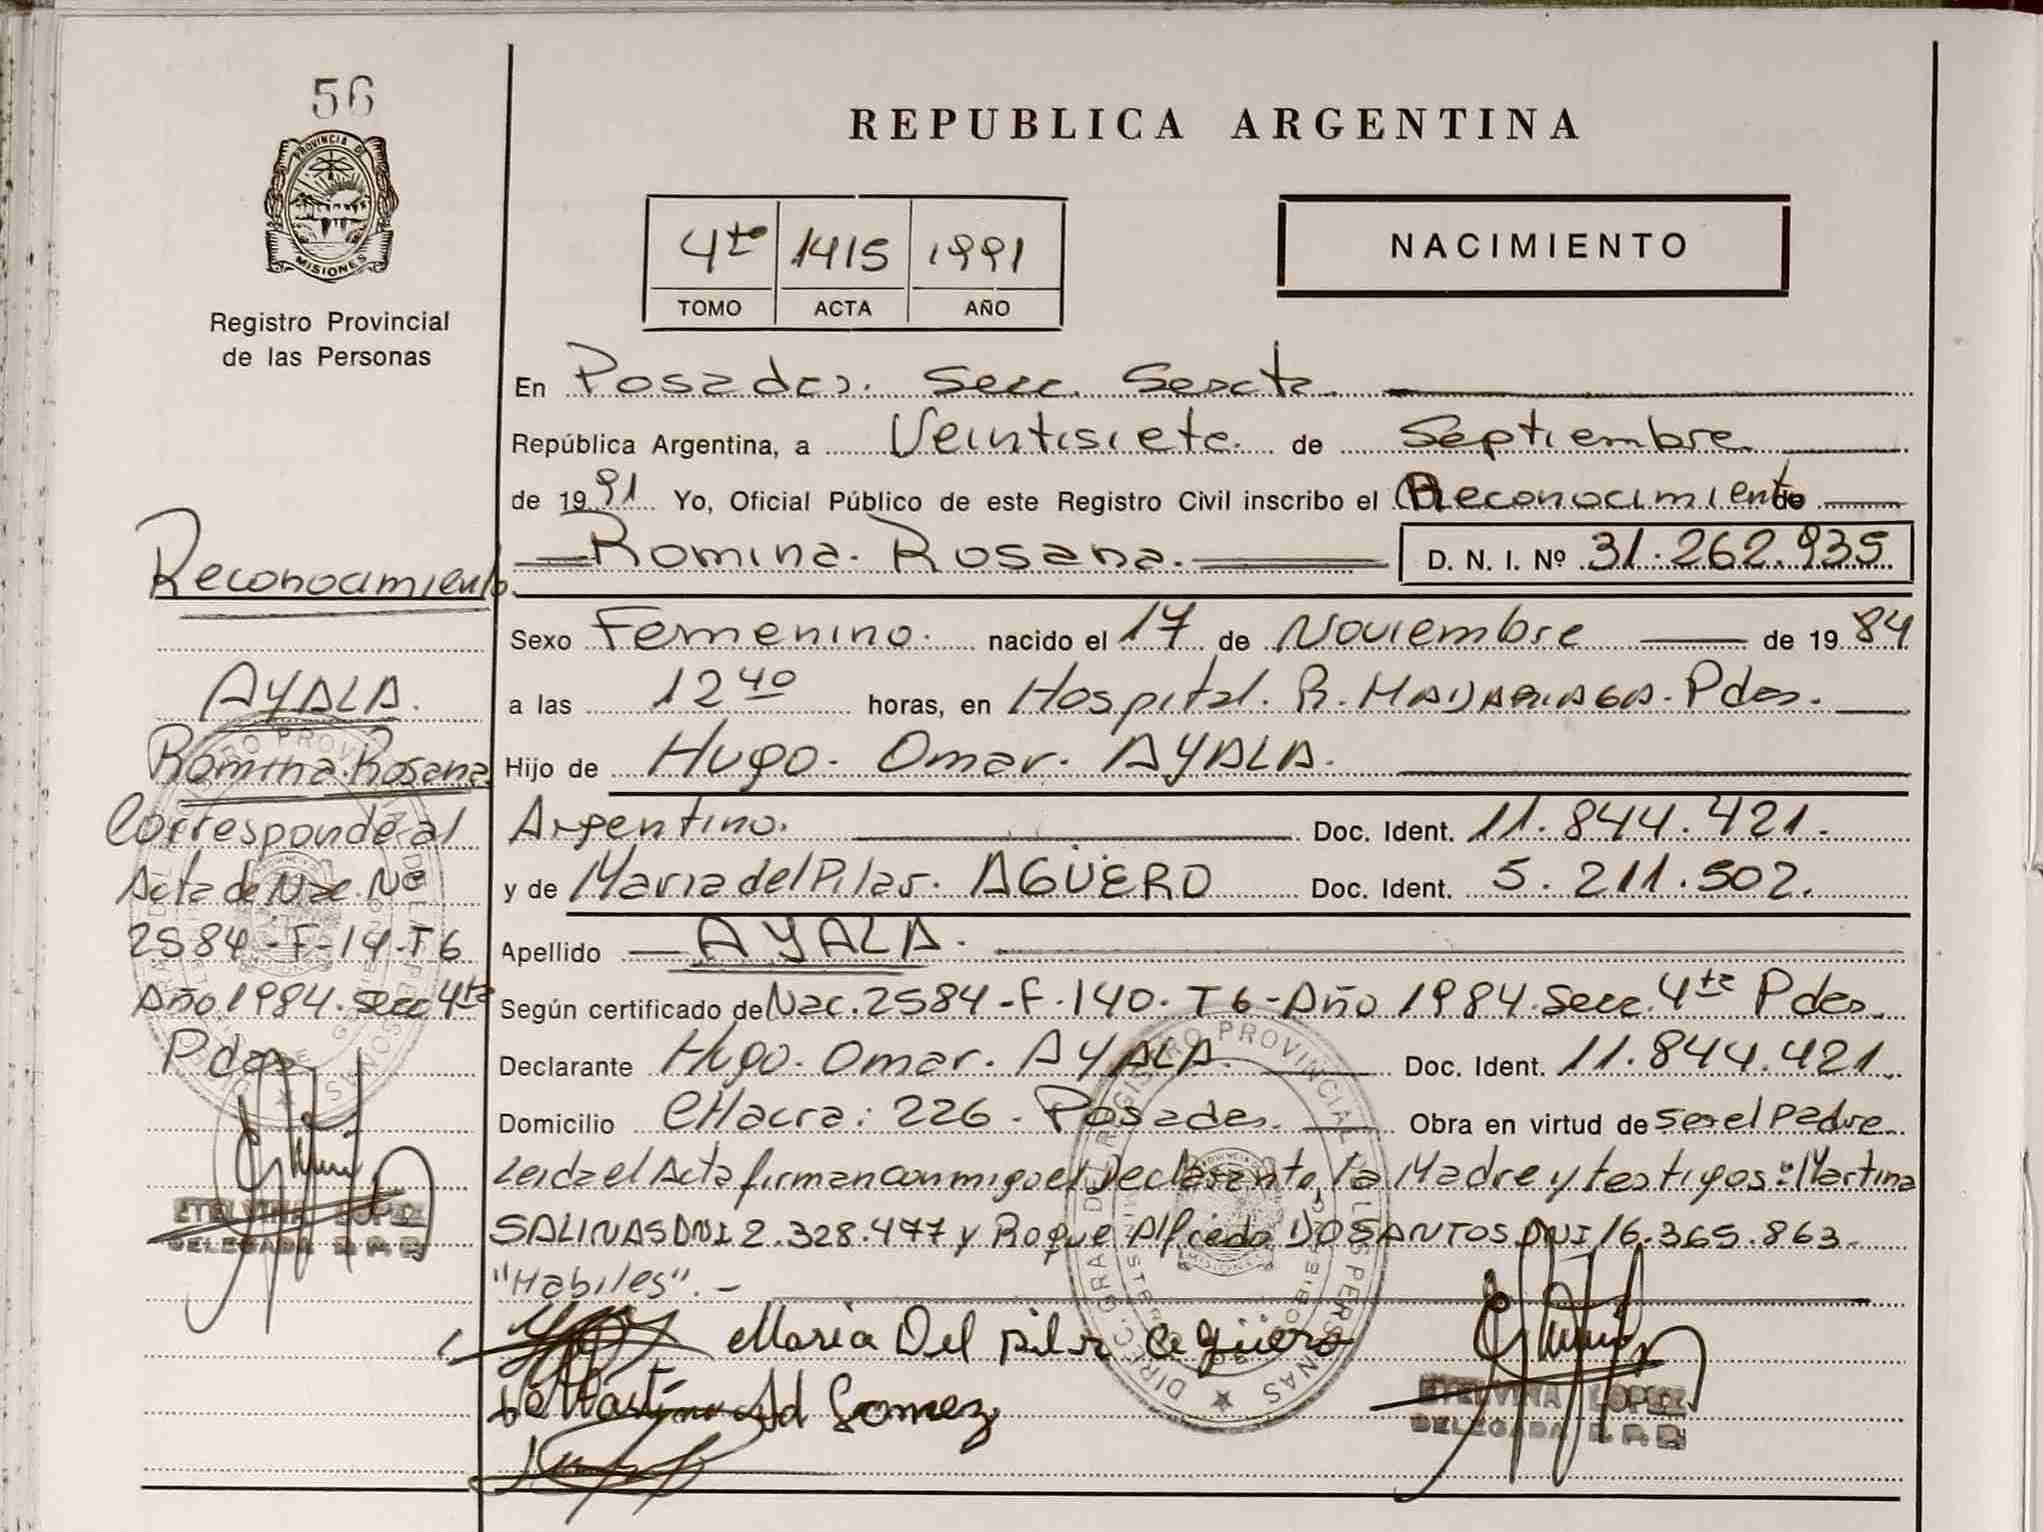 56
PROVINCIA DE
MISIONES
Registro Provincial
de las Personas
REPUBLICA ARGENTINA
4to 1415 1991
TOMO ACTA AÑO
NACIMIENTO
En Posadas. Secc. Sexta
República Argentina, a Veintisiete. de Septiembre
de 1991 Yo, Oficial Público de este Registro Civil inscribo el Reconocimiento
Romina. Rosana. D. N. I. Nº 31.262.935
Sexo Femenino. nacido el 17 de Noviembre de 1984
a las 12 40 horas, en Hospital. R. MADARIAGA. Pdas.
Hijo de Hugo. Omar. AYALA.
Argentino. Doc. Ident. 11.844.421.
y de Maria del Pilar. AGÜERO Doc. Ident. 5.211.502.
Apellido AYALA.
Según certificado de Nac. 2584-F.140. T6-Año 1984. Secc. 4ta Pdas.
Declarante Hugo. Omar. AYALA. Doc. Ident. 11.844.421.
Domicilio CHacra: 226 - Posadas. Obra en virtud de ser el padre
Leida el Acta firman conmigo el Declarante, la Madre y testigos: Martina
SALINAS DNI 2.328.477 y Roque Alfredo DOSANTOS DNI 16.365.863.
"Habiles". -
Maria Del pilar Agüero
Gomez
ETELVINA LOPEZ
DELEGADA R. P. P.
Reconocimiento
AYALA.
Romina. Rosana
Corresponde al
Acta de Nac. Nº
2584.-F-14-T6
Año 1984. Secc 4ta
Pdas
ETELVINA LOPEZ
DELEGADA R. P. P.